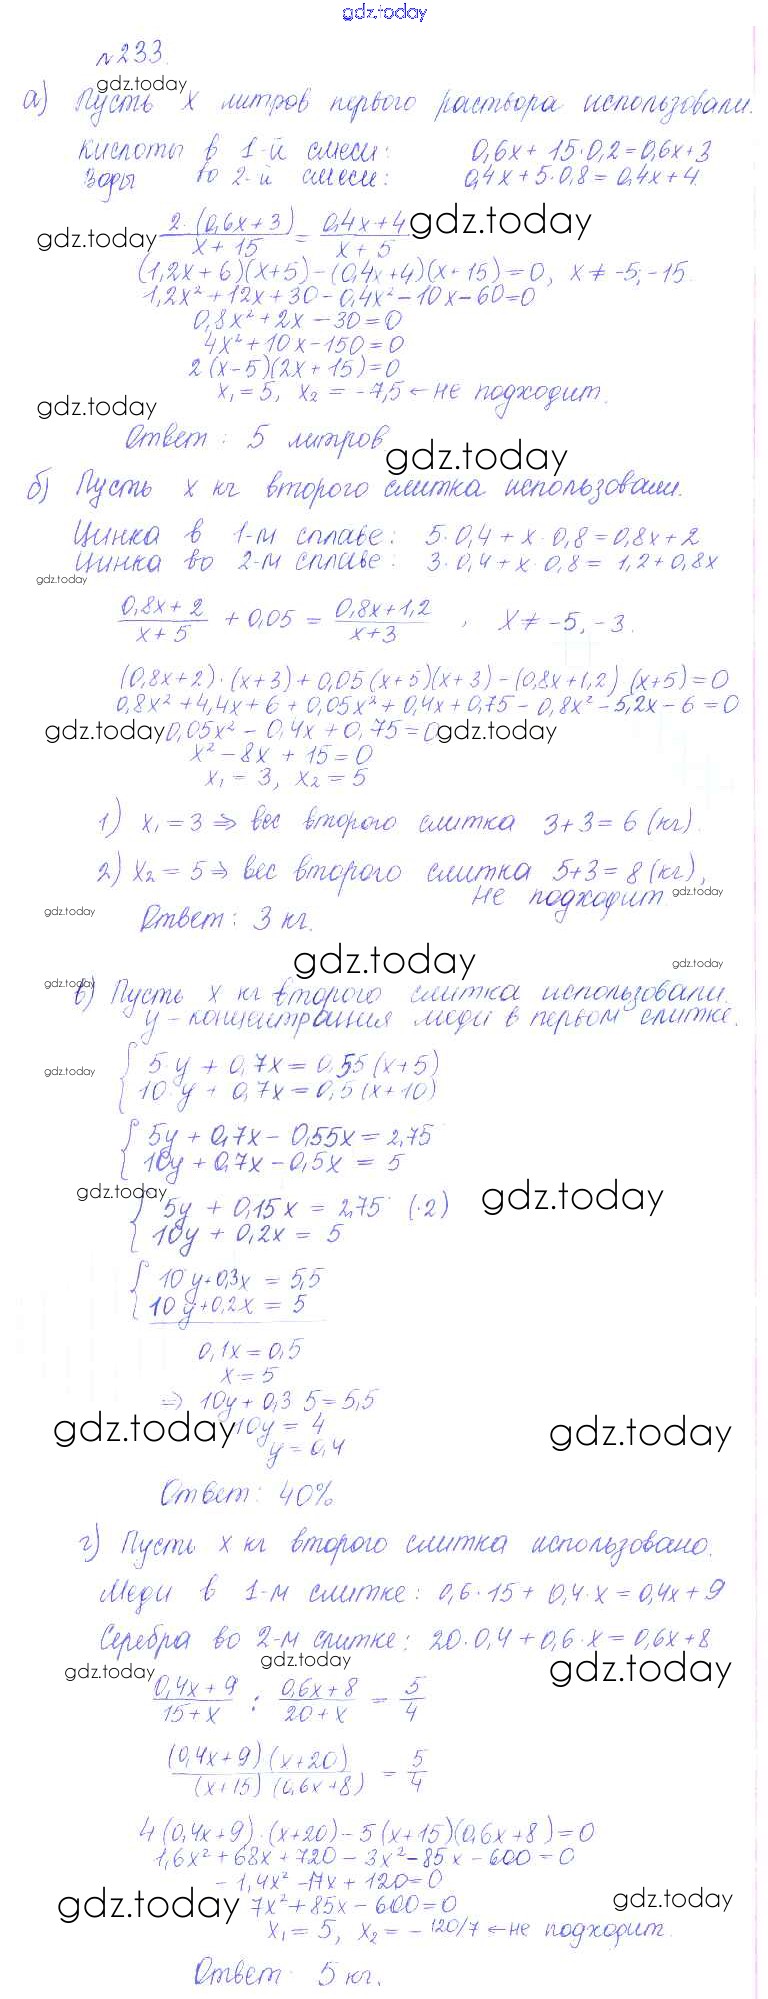 gdz.today
№233.
gdz.today
а) Пусть x литров первого раствора использовали.
Кислоты в 1-й смеси: 0,6x + 15·0,2 = 0,6x+3
Воды во 2-й смеси: 0,4x + 5·0,8 = 0,4x+4.
gdz.today 2·(0,6x+3)/(x+15) = (0,4x+4)/(x+5) gdz.today
(1,2x+6)(x+5) - (0,4x+4)(x+15) = 0, x ≠ -5; -15.
1,2x² + 12x + 30 - 0,4x² - 10x - 60 = 0
0,8x² + 2x - 30 = 0
4x² + 10x - 150 = 0
2(x-5)(2x+15) = 0
x₁ = 5, x₂ = -7,5 ← не подходит.
gdz.today
Ответ: 5 литров
gdz.today
б) Пусть x кг второго слитка использовали.
Цинка в 1-м сплаве: 5·0,4 + x·0,8 = 0,8x + 2
Цинка во 2-м сплаве: 3·0,4 + x·0,8 = 1,2 + 0,8x
gdz.today
(0,8x+2)/(x+5) + 0,05 = (0,8x+1,2)/(x+3), x ≠ -5, -3.
(0,8x+2)·(x+3) + 0,05(x+5)(x+3) - (0,8x+1,2)(x+5) = 0
0,8x² + 4,4x + 6 + 0,05x² + 0,4x + 0,75 - 0,8x² - 5,2x - 6 = 0
gdz.today 0,05x² - 0,4x + 0,75 = 0 gdz.today
x² - 8x + 15 = 0
x₁ = 3, x₂ = 5
1) x₁ = 3 ⇒ вес второго слитка 3+3 = 6 (кг).
2) x₂ = 5 ⇒ вес второго слитка 5+3 = 8 (кг),
не подходит gdz.today
gdz.today
Ответ: 3 кг.
gdz.today
gdz.today
gdz.today
в) Пусть x кг второго слитка использовали.
y - концентрация меди в первом слитке.
gdz.today
{ 5·y + 0,7x = 0,55(x+5)
10·y + 0,7x = 0,5(x+10)
{ 5y + 0,7x - 0,55x = 2,75
10y + 0,7x - 0,5x = 5
gdz.today gdz.today
{ 5y + 0,15x = 2,75 (·2)
10y + 0,2x = 5
{ 10y + 0,3x = 5,5
10y + 0,2x = 5
0,1x = 0,5
x = 5
⇒ 10y + 0,3 5 = 5,5
gdz.today 10y = 4 gdz.today
y = 0,4
Ответ: 40%
г) Пусть x кг второго слитка использовано.
Меди в 1-м слитке: 0,6·15 + 0,4·x = 0,4x + 9
Серебра во 2-м слитке: 20·0,4 + 0,6·x = 0,6x+8
gdz.today
gdz.today gdz.today
(0,4x+9)/(15+x) : (0,6x+8)/(20+x) = 5/4
(0,4x+9)(x+20)/(x+15)(0,6x+8) = 5/4
4(0,4x+9)·(x+20) - 5(x+15)(0,6x+8) = 0
1,6x² + 68x + 720 - 3x² - 85x - 600 = 0
-1,4x² - 17x + 120 = 0
gdz.today 7x² + 85x - 600 = 0 gdz.today
x₁ = 5, x₂ = -120/7 ← не подходит.
Ответ: 5 кг.